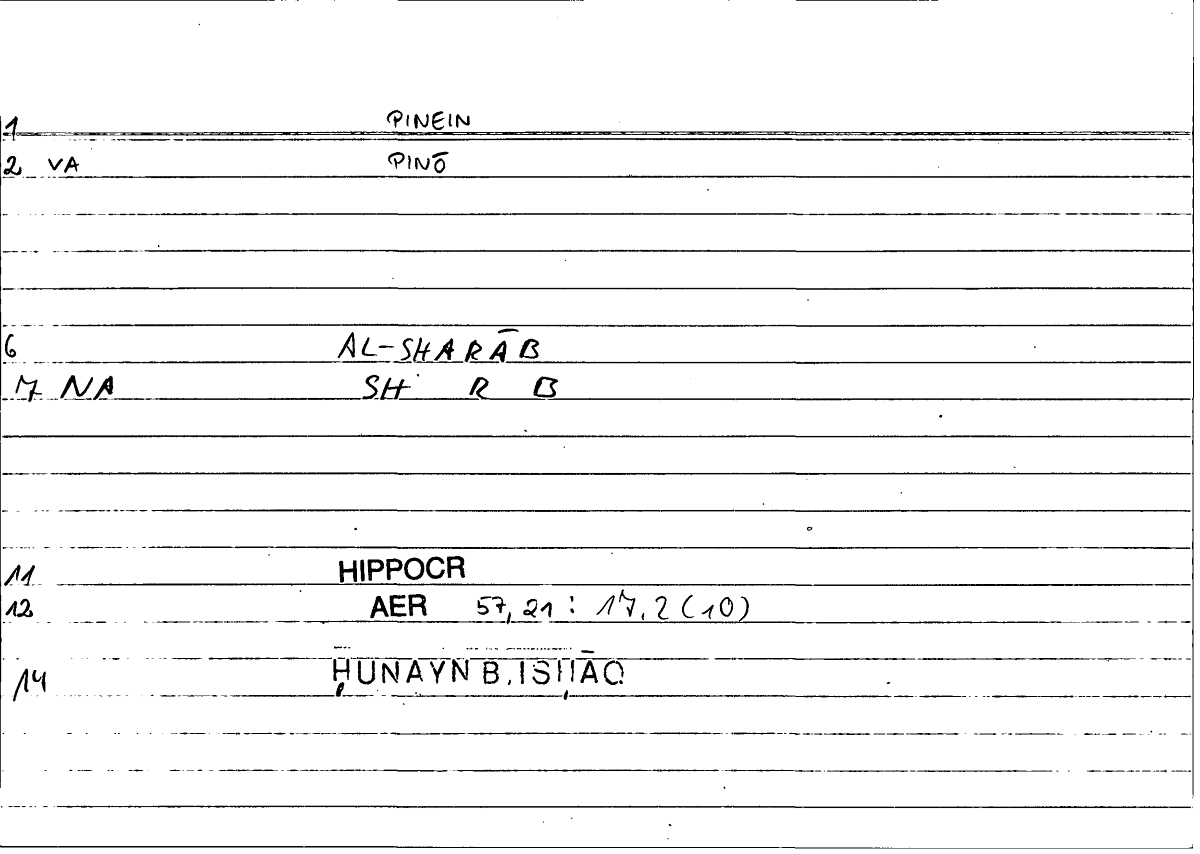 1 PINEIN
2 VA PINŌ
6 AL-SHARĀB
7 NA SH R B
11 HIPPOCR
12 AER 57,21 : 17,2 (10)
14 ḤUNAYN B. ISḤĀQ